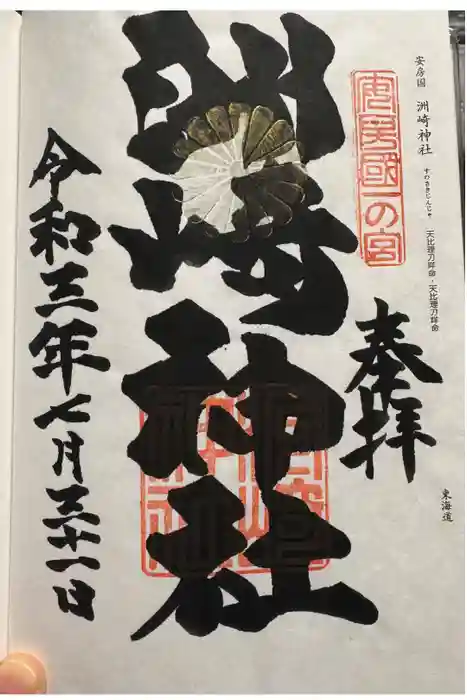 安房國 洲崎神社 すのさきじんじゃ 天比理刀咩命・天比理刀咩命
東海道
安房國一の宮
奉拝
洲崎神社
令和三年七月三十一日